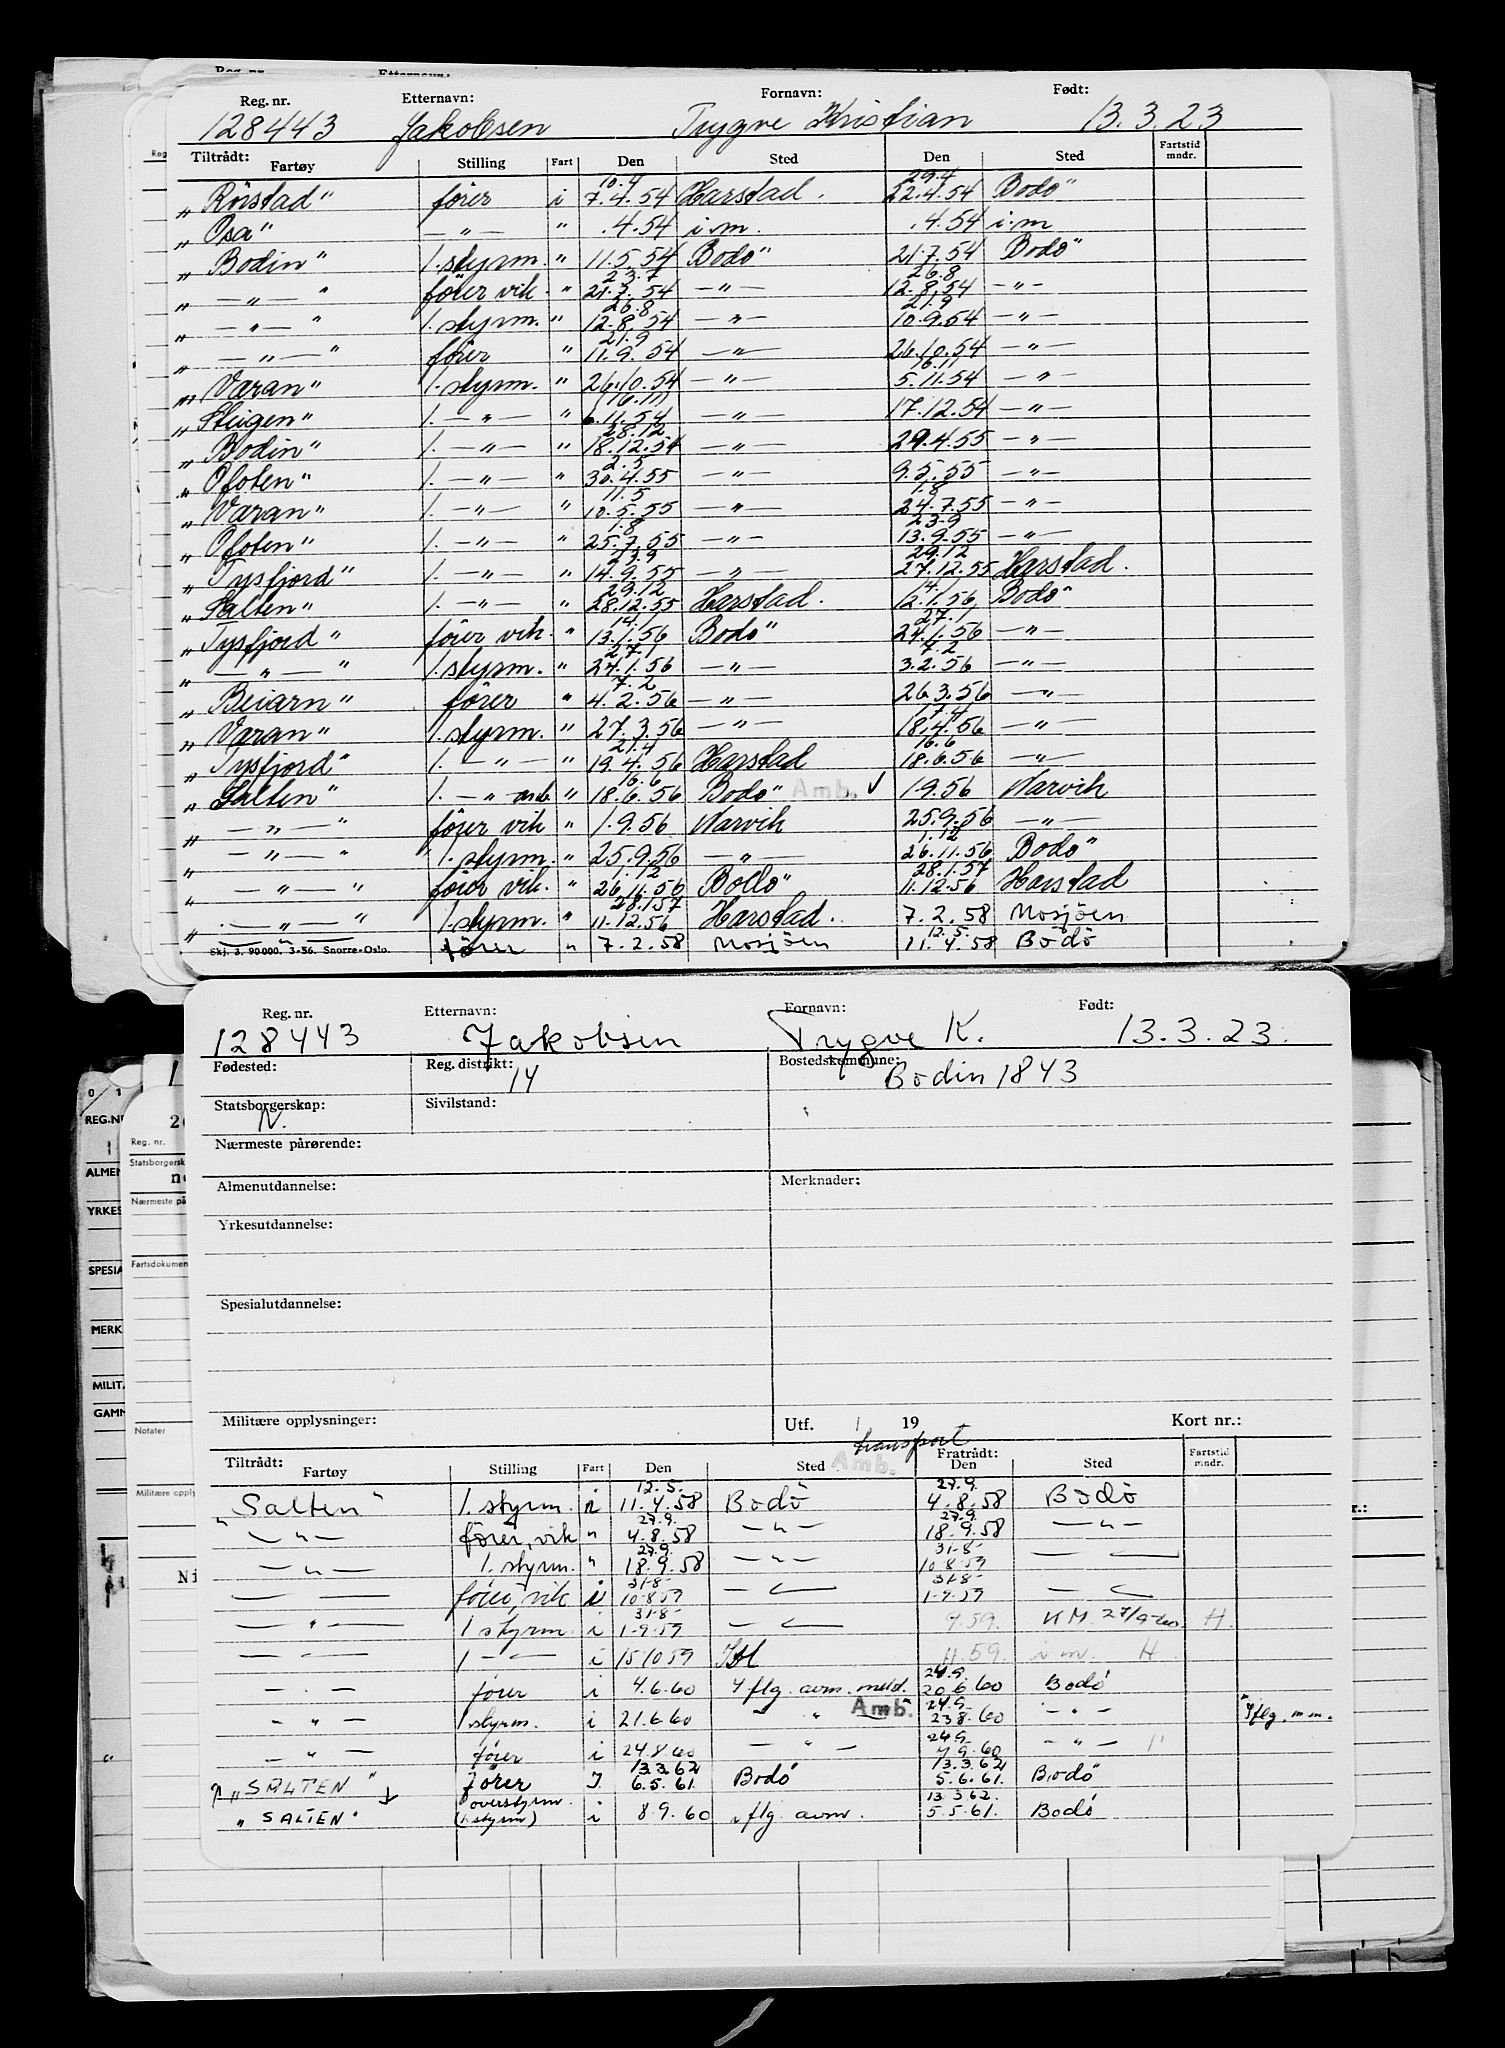 Reg. nr. Etternavn: Fornavn: Født:
128443 Jakobsen Trygve Kristian 13.3.23
Tiltrådt: Fartøy Stilling Fart Den Sted Den Sted Fartstid mndr.
10.4 29.4
„Rörstad" fører i 7.4.54 Harstad. 22.4.54 Bodö"
„Osa" —„— " .4.54 i.m. .4.54 i.m
„Bodin" 1.styrm. " 11.5.54 Bodö" 21.7.54 Bodö"
23.7 26.8
„—„—" fører vik. " 21.7.54 —„— 12.8.54 —„—
26.8 21.9
„—„—" 1.styrm. " 12.8.54 —„— 10.9.54 —„—
21.9
„—„—" fører " 11.9.54 —„— 26.10.54 —„—
16.11
„Varan" 1.styrm. " 26.10.54 —„— 5.11.54 —„—
16.11
„Steigen" 1.—„— " 6.11.54 —„— 17.12.54 —„—
28.12
„Bodin" 1.—„— " 18.12.54 —„— 29.4.55 —„—
2.5
„Ofoten" 1.—„— " 30.4.55 —„— 9.5.55 —„—
11.5 1.8
„Varan" 1.—„— " 10.5.55 —„— 24.7.55 —„—
1.8 23.9
„Ofoten" 1.—„— " 25.7.55 —„— 13.9.55 —„—
23.9 29.12
„Tysfjord" 1.—„— " 14.9.55 —„— 27.12.55 Harstad.
29.12 14.1
„Salten" 1.—„— " 28.12.55 Harstad. 12.1.56 Bodö"
14.1 27.1
„Tysfjord" fører vik. " 13.1.56 Bodö" 24.1.56 —„—
27.1 7.2
„—„—" 1.styrm. " 24.1.56 —„— 3.2.56 —„—
7.2
„Beiarn" fører " 4.2.56 —„— 26.3.56 —„—
17.4
„Varan" 1.styrm. " 27.3.56 —„— 18.4.56 —„—
21.4 16.6
„Tysfjord" 1.—„— " 19.4.56 Harstad 18.6.56 —„—
16.6
„Salten" 1.—„— amb. " 18.6.56 Bodö" Amb. ✓ 1.9.56 Narvik
„—„—" fører vik " 1.9.56 Narvik 25.9.56 —„—
1.12
„—„—" 1.styrm. " 25.9.56 —„— 26.11.56 Bodö"
1.12 28.1.57
„—„—" fører vik. " 26.11.56 Bodö" 11.12.56 Harstad
28.1.57
„—„—" 1.styrm. " 11.12.56 Harstad. 7.2.58 Mosjöen
12.5.
—„— fører " 7.2.58 Mosjöen 11.4.58 Bodö
Skj. 3. 90 000. 3-56. Snorre-Oslo.
Reg. nr. Etternavn: Fornavn: Født:
128443 Jakobsen Trygve K. 13.3.23.
Fødested: Reg. distrikt: 14 Bostedskommune: Bodin 1843
Statsborgerskap: N. Sivilstand:
Nærmeste pårørende:
Almenutdannelse: Merknader:
Yrkesutdannelse:
Spesialutdannelse:
Militære opplysninger: Utf. / 19 Kort nr.:
transport
Tiltrådt: Fartøy Stilling Fart Den Sted Amb. Fratrådt: Den Sted Fartstid mndr.
12.5. 27.9.
„Salten" 1.styrm. i 11.4.58 Bodö 4.8.58 Bodö
27.9. 27.9.
—„— fører, vik " 4.8.58 —„— 18.9.58 —„—
27.9. 31-8-
—„— 1.styrm. " 18.9.58 —„— 10.8.59
31-8- 31-8-
fører, vik i 10-8-59 1-9-59
31-8-
—„— 1 styrm. i 1-9-59 9.59. KM. H.
1 —„— i 15/10 59 11.59. i m. H
24.9.
—„— fører i 4.6.60 iflg. avm. meld. 20.6.60 Bodö
24.9.
—„— 1 styrm. i 21.6.60 —„— Amb. 23.8.60 —„— iflg. m.m.
24.9.
—„— fører i 24.8.60 —„— 7.9.60 —„—
13.3.62 13.3.62
„SALTEN" fører I 6.5.61. Bodö 5.6.61. Bodö
overstyrm. 13.3.62.
„SALTEN" (1.styrm) i 8.9.60 iflg avm. 5.5.61. Bodö
REG.NR
Reg. nr.
Statsborgersk
ALMEN
Nærmeste på
YRKES
Fartsdokumen
SPESIA
MERK
MILITÆ
GAMM
Notater
Militære oppl